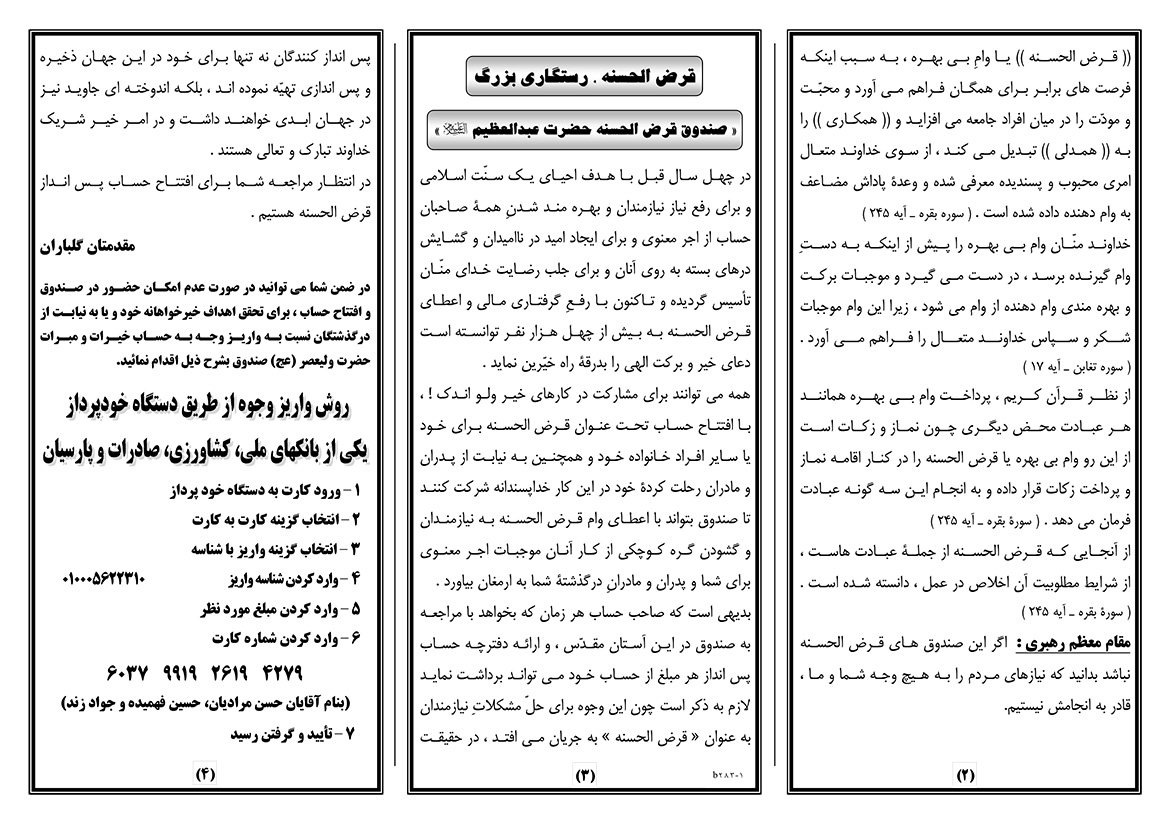 (( قرض الحسنه )) یا وامِ بی بهره ، به سبب اینکه
فرصت های برابر برای همگان فراهم می آورد و محبّت
و مودّت را در میان افراد جامعه می افزاید و (( همکاری )) را
به (( همدلی )) تبدیل می کند ، از سوی خداوند متعال
امری محبوب و پسندیده معرفی شده و وعدهٔ پاداش مضاعف
به وام دهنده داده شده است . ( سوره بقره ـ آیه ۲۴۵ )
خداوند منّان وام بی بهره را پیش از اینکه به دستِ
وام گیرنده برسد ، در دست می گیرد و موجبات برکت
و بهره مندی وام دهنده از وام می شود ، زیرا این وام موجبات
شکر و سپاس خداوند متعال را فراهم می آورد .
( سوره تغابن ـ آیه ۱۷ )
از نظر قرآن کریم ، پرداخت وام بی بهره همانند
هر عبادت محض دیگری چون نماز و زکات است
از این رو وام بی بهره یا قرض الحسنه را در کنار اقامه نماز
و پرداخت زکات قرار داده و به انجام این سه گونه عبادت
فرمان می دهد . ( سورهٔ بقره ـ آیه ۲۴۵ )
از آنجایی که قرض الحسنه از جملهٔ عبادت هاست ،
از شرایط مطلوبیت آن اخلاص در عمل ، دانسته شده است .
( سورهٔ بقره ـ آیه ۲۴۵ )
مقام معظم رهبری : اگر این صندوق های قرض الحسنه
نباشد بدانید که نیازهای مردم را به هیچ وجه شما و ما ،
قادر به انجامش نیستیم.
(۲)
قرض الحسنه . رستگاری بزرگ
« صندوق قرض الحسنه حضرت عبدالعظیم »
در چهل سال قبل با هدف احیای یک سنّت اسلامی
و برای رفع نیاز نیازمندان و بهره مند شدنِ همهٔ صاحبان
حساب از اجر معنوی و برای ایجاد امید در ناامیدان و گشایش
درهای بسته به روی آنان و برای جلب رضایت خدای منّان
تأسیس گردیده و تاکنون با رفعِ گرفتاری مالی و اعطای
قرض الحسنه به بیش از چهل هزار نفر توانسته است
دعای خیر و برکت الهی را بدرقهٔ راه خیّرین نماید .
همه می توانند برای مشارکت در کارهای خیر ولو اندک ! ،
با افتتاح حساب تحت عنوان قرض الحسنه برای خود
یا سایر افراد خانواده خود و همچنین به نیابت از پدران
و مادران رحلت کردهٔ خود در این کار خداپسندانه شرکت کنند
تا صندوق بتواند با اعطای وام قرض الحسنه به نیازمندان
و گشودن گره کوچکی از کار آنان موجبات اجر معنوی
برای شما و پدران و مادرانِ درگذشتهٔ شما به ارمغان بیاورد .
بدیهی است که صاحب حساب هر زمان که بخواهد با مراجعه
به صندوق در این آستان مقدّس ، و ارائه دفترچه حساب
پس انداز هر مبلغ از حساب خود می تواند برداشت نماید
لازم به ذکر است چون این وجوه برای حلّ مشکلاتِ نیازمندان
به عنوان « قرض الحسنه » به جریان می افتد ، در حقیقت
b۲۸۳-۱
(۳)
پس انداز کنندگان نه تنها برای خود در این جهان ذخیره
و پس اندازی تهیّه نموده اند ، بلکه اندوخته ای جاوید نیز
در جهان ابدی خواهند داشت و در امر خیر شریک
خداوند تبارک و تعالی هستند .
در انتظار مراجعه شما برای افتتاح حساب پس انداز
قرض الحسنه هستیم .
مقدمتان گلباران
در ضمن شما می توانید در صورت عدم امکان حضور در صندوق
و افتتاح حساب ، برای تحقق اهداف خیرخواهانه خود و یا به نیابت از
درگذشتگان نسبت به واریز وجه به حساب خیرات و مبرات
حضرت ولیعصر (عج) صندوق بشرح ذیل اقدام نمائید.
روش واریز وجوه از طریق دستگاه خودپرداز
یکی از بانکهای ملی، کشاورزی، صادرات و پارسیان
۱ - ورود کارت به دستگاه خود پرداز
۲ - انتخاب گزینه کارت به کارت
۳ - انتخاب گزینه واریز با شناسه
۴ - وارد کردن شناسه واریز ۰۱۰۰۰۵۶۲۲۳۱۰
۵ - وارد کردن مبلغ مورد نظر
۶ - وارد کردن شماره کارت
۶۰۳۷ ۹۹۱۹ ۲۶۱۹ ۴۲۷۹
(بنام آقایان حسن مرادیان، حسین فهمیده و جواد زند)
۷ - تأیید و گرفتن رسید
(۴)